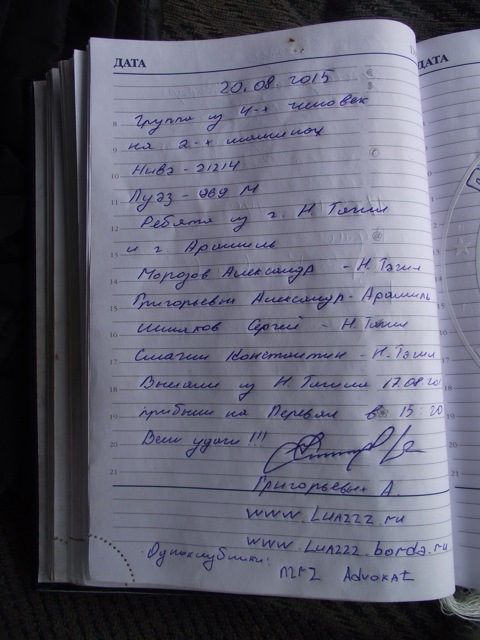 ДАТА
ДАТА
20.08.2015
8 Группа из 4-х человек
9 на 2-х машинах
10 Нива-21214
11 Луаз-969 М
12 Ребята из г. Н Тагил
13 и г. Арамиль
14 Морозов Александр - Н.Тагил
15 Григорьевых Александр-Арамиль
16 Сергей - Н.Тагил
17 Смагин Константин - Н.Тагил
18 Выехали из Н.Тагила 17.08.201
19 прибыли на Перевал в 15:20
20 Всем удачи!!!
21 Григорьевых А.
www.Luazzz.ru
www.Luazzz.borda.ru
Одноклубники:
Advokat